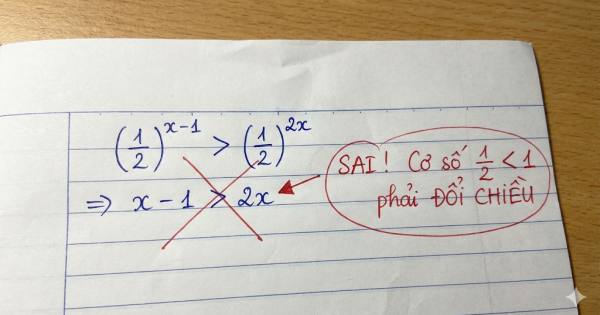 (1/2)^{x-1} > (1/2)^{2x}
⇒ x - 1 > 2x
SAI! Cơ số 1/2 < 1
phải ĐỔI CHIỀU